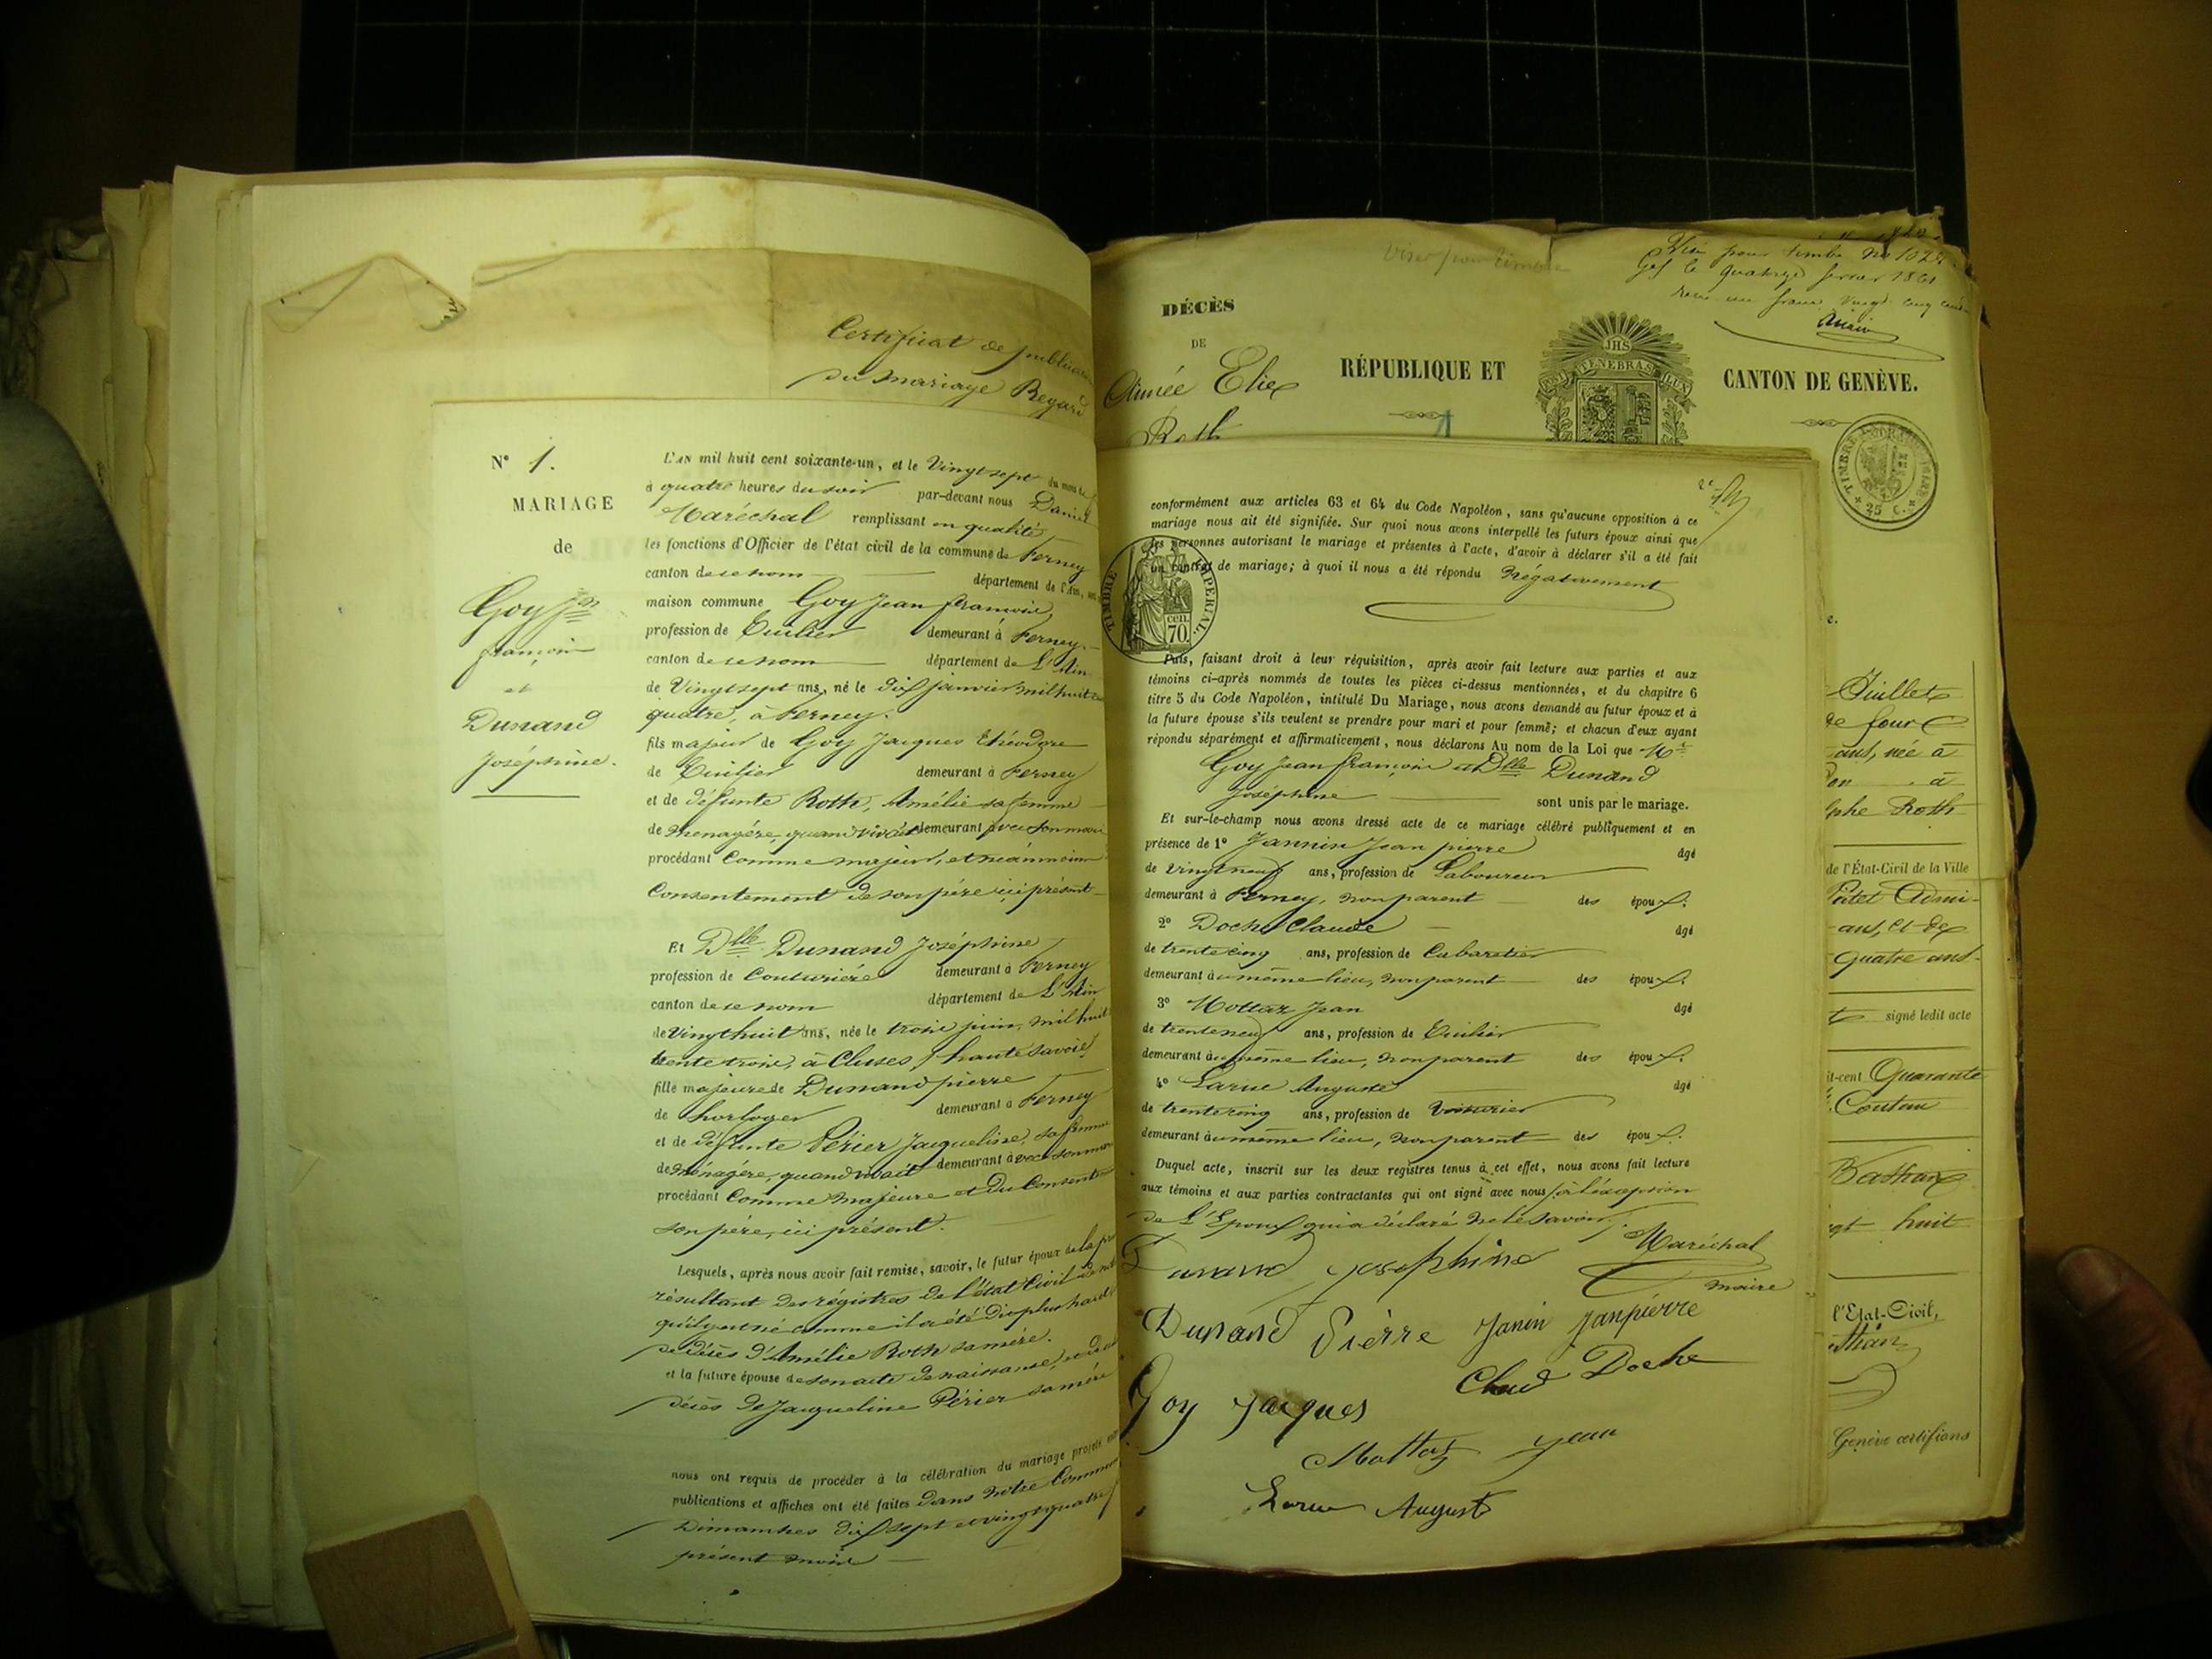 Certificat de publication
du mariage Regard
N° 1.
MARIAGE
de
Goy Jn
françois
et
Dunand
Joséphine.
L'AN mil huit cent soixante-un, et le Vingt sept du mois de
à quatre heures du soir par-devant nous Daniel
Maréchal remplissant en qualité
les fonctions d'Officier de l'état civil de la commune de Ferney
canton de ce nom département de l'Ain,
maison commune Goy Jean françois,
profession de Tuilier demeurant à Ferney.
canton de ce nom département de L'Ain
de Vingt sept ans, né le dix janvier mil huit
quatre, à Ferney.
fils majeur de Goy Jacques Théodore
de Tuilier demeurant à Ferney
et de défunte Roth, Amélie sa femme
de ménagère, quand vivait demeurant avec son mari
procédant Comme majeur, et néanmoins
Consentement de son père ici présent
Et Dlle Dunand Joséphine
profession de Couturière demeurant à Ferney
canton de ce nom département de L'Ain
de Vingt huit ans, née le trois juin, mil huit
trente trois, à Cluses, (haute Savoie)
fille majeure de Dunand pierre
de horloger demeurant à Ferney
et de défunte Périer Jacqueline, sa femme
de ménagère, quand vivait demeurant avec son mari
procédant Comme majeure et du Consente
son père, ici présent.
Lesquels, après nous avoir fait remise, savoir, le futur époux de la
résultant des régistres de l'état Civil de
qu'il y est né comme il a été dit plus haut
de décès d'Amélie Roth sa mère.
et la future épouse de son acte de naissance,
décès de Jacqueline Périer sa mère
nous ont requis de procéder à la célébration du mariage projeté
publications et affiches ont été faites dans notre Commune
Dimanches dix sept et vingt quatre
présent mois
Viser pour timbre
Visé pour timbre No 102
Gex le quatorze février 1861
reçu un franc vingt cinq
DÉCÈS
DE
Aimée Elie
Roth
RÉPUBLIQUE ET
CANTON DE GENÈVE.
JHS
POST TENEBRAS LUX
TIMBRE
25 C.
conformément aux articles 63 et 64 du Code Napoléon, sans qu'aucune opposition à ce
mariage nous ait été signifiée. Sur quoi nous avons interpellé les futurs époux ainsi que
les personnes autorisant le mariage et présentes à l'acte, d'avoir à déclarer s'il a été fait
un contrat de mariage; à quoi il nous a été répondu Négativement
TIMBRE IMPÉRIAL.
CEN. 70.
Puis, faisant droit à leur réquisition, après avoir fait lecture aux parties et aux
témoins ci-après nommés de toutes les pièces ci-dessus mentionnées, et du chapitre 6
titre 5 du Code Napoléon, intitulé Du Mariage, nous avons demandé au futur époux et à
la future épouse s'ils veulent se prendre pour mari et pour femme; et chacun d'eux ayant
répondu séparément et affirmativement, nous déclarons Au nom de la Loi que Mr
Goy Jean françois et Dlle Dunand
Joséphine sont unis par le mariage.
Et sur-le-champ nous avons dressé acte de ce mariage célébré publiquement et en
présence de 1° Jannin Jean pierre âgé
de vingt neuf ans, profession de Laboureur
demeurant à Ferney, non parent des époux.
2° Doche Claude âgé
de trente cinq ans, profession de Cabaretier
demeurant au même lieu, non parent des époux.
3° Mottaz Jean âgé
de trente neuf ans, profession de Tuilier
demeurant au même lieu, non parent des époux.
4° Larue Auguste âgé
de trente cinq ans, profession de Voiturier
demeurant au même lieu, non parent des époux.
Duquel acte, inscrit sur les deux registres tenus à cet effet, nous avons fait lecture
aux témoins et aux parties contractantes qui ont signé avec nous (à l'exception
de L'Epoux qui a déclaré ne le savoir).
Dunand josephine
Maréchal
maire
Dunand Pièrre Janin Janpierre
Claud Doche
Goy jacques
Mottaz jean
Larue August
Juillet
de four
ans, née à
à
Roth
de l'État-Civil de la Ville
ans, et de
quatre ans
signé ledit acte
it-cent Quarante
Coutau
huit
l'Etat-Civil,
Genève certifions